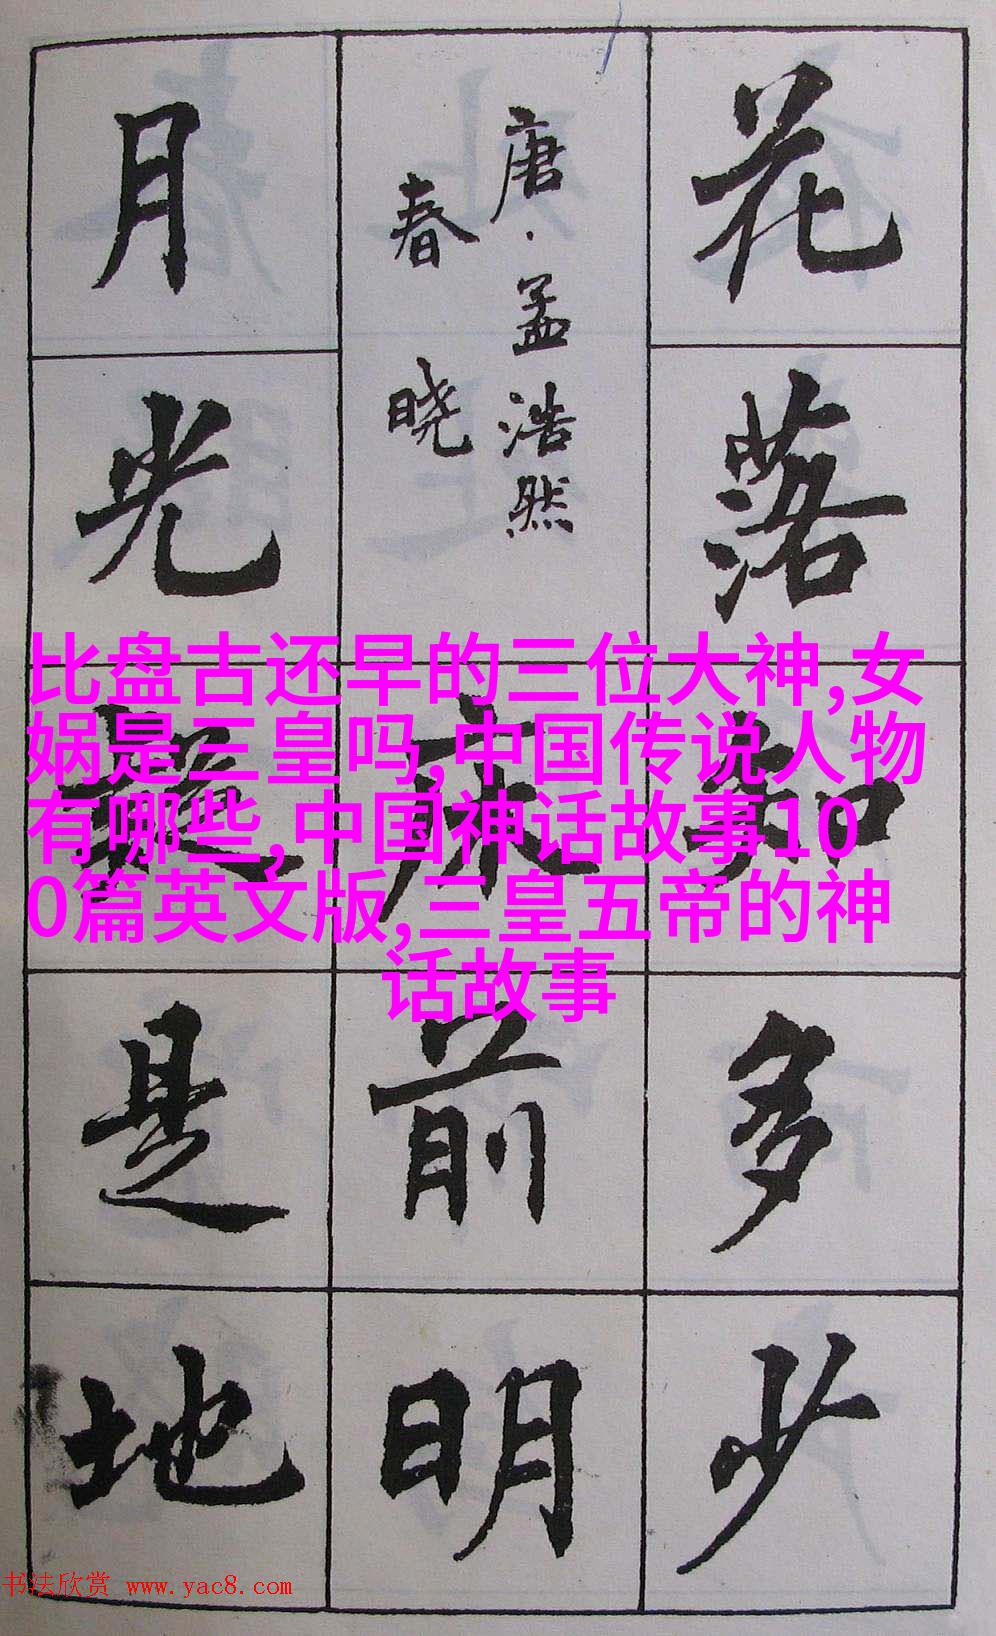 花落知多少
唐·孟浩然
春晓
床前明
月光疑是地
比盘古还早的三位大神,女
娲是三皇吗,中国传说人物
有哪些,中国神话故事10
0篇英文版,三皇五帝的神
话故事
书法欣赏 www.yac8.com